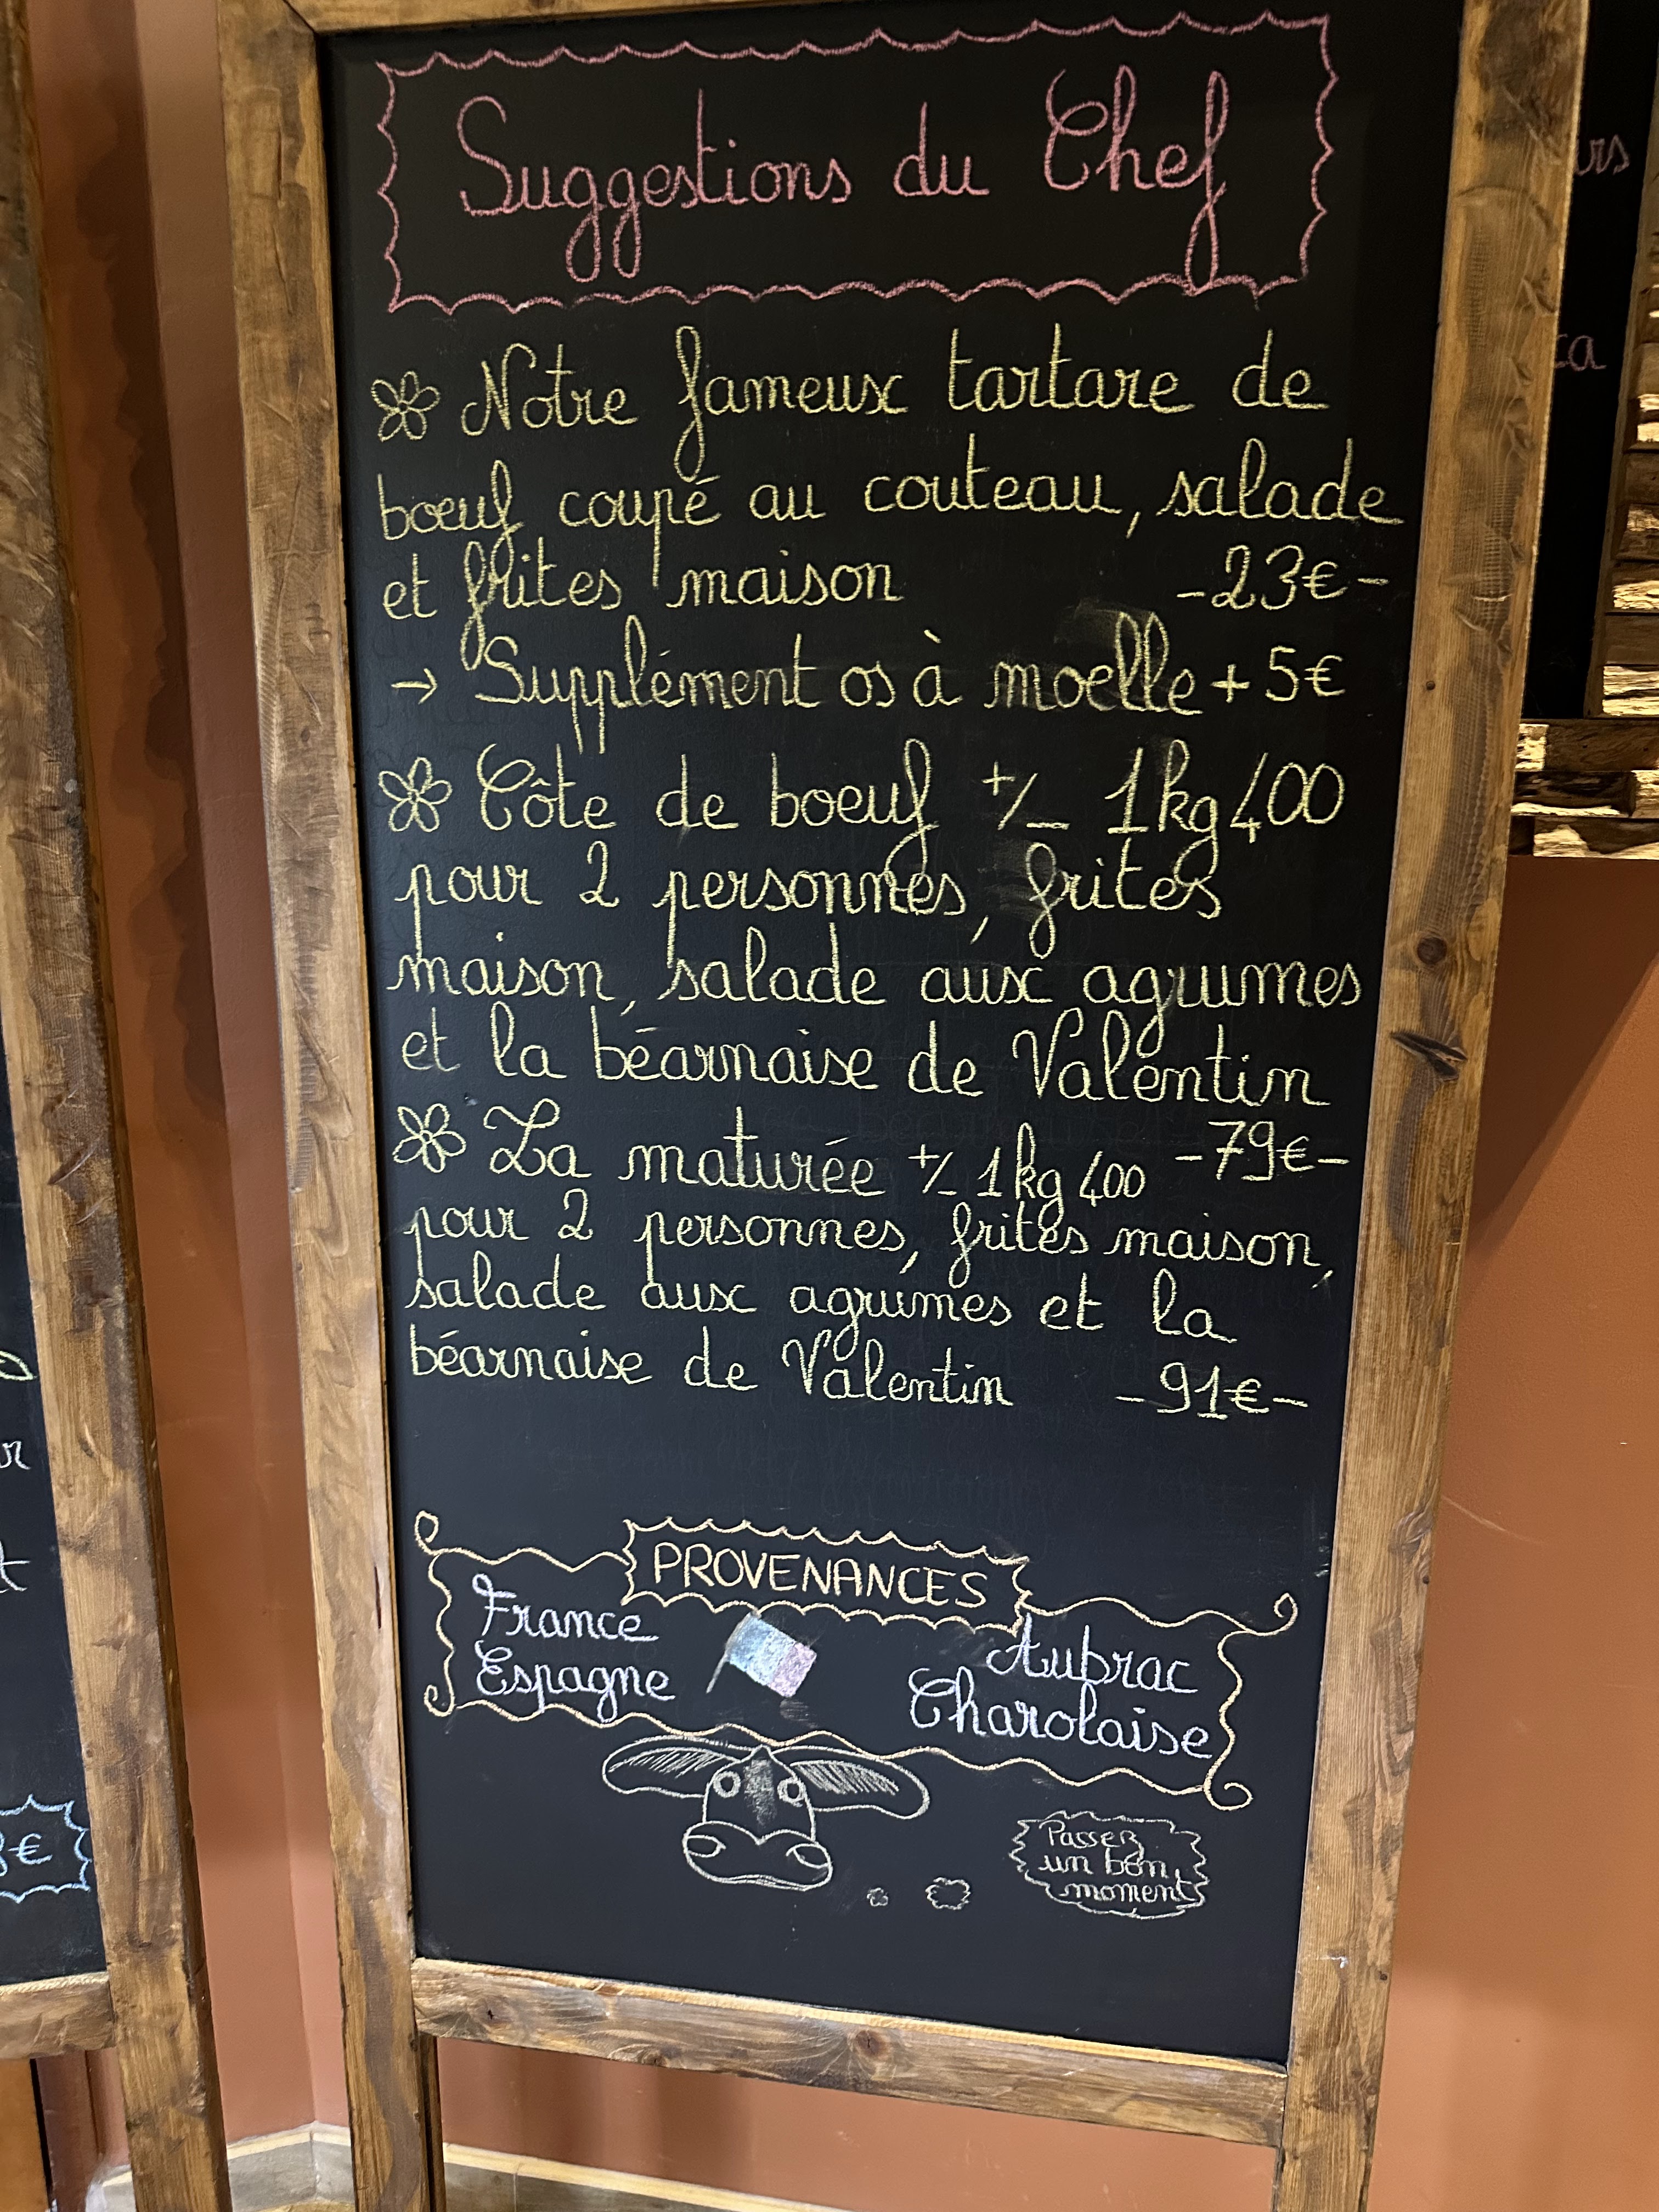 Suggestions du Chef
Notre fameux tartare de
boeuf coupé au couteau, salade
et frites maison -23€-
→ Supplément os à moelle + 5€
Côte de boeuf +/- 1kg400
pour 2 personnes, frites
maison, salade aux agrumes
et la béarnaise de Valentin
-79€-
La maturée +/- 1kg400
pour 2 personnes, frites maison,
salade aux agrumes et la
béarnaise de Valentin -91€-
PROVENANCES
France
Espagne
Aubrac
Charolaise
Passez
un bon
moment